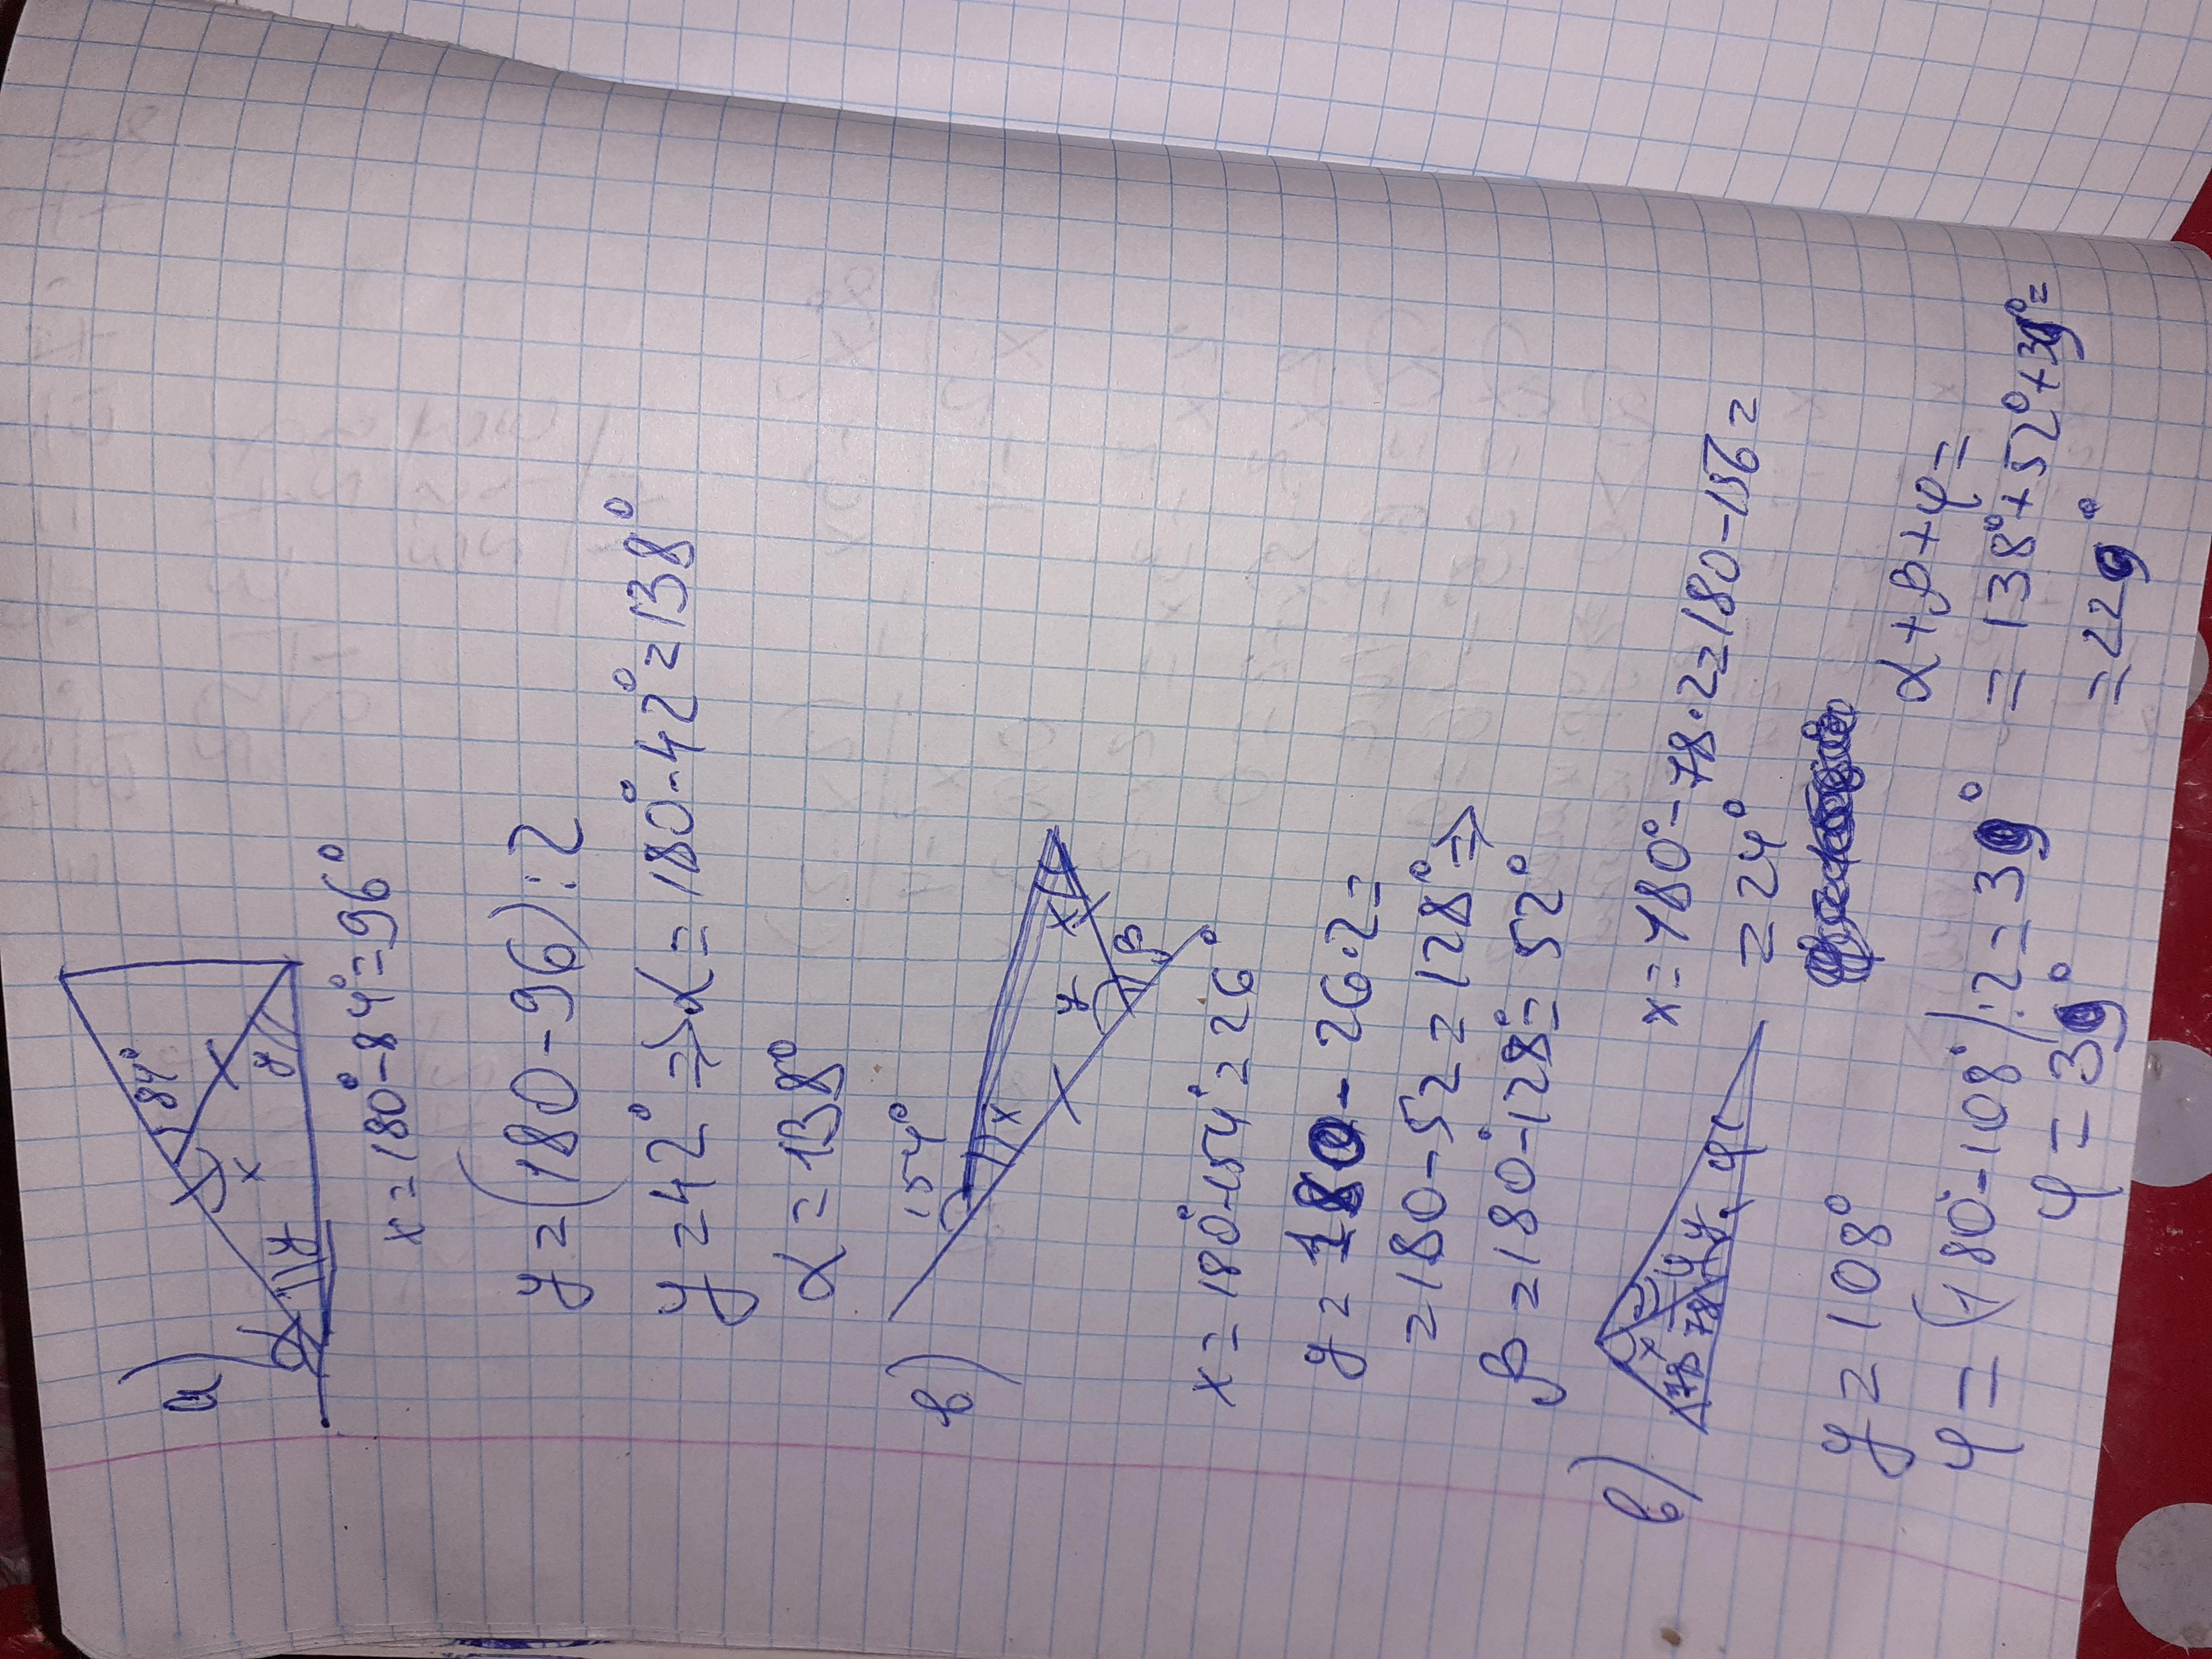 а)
84°
x
y
y
α
x = 180° - 84° = 96°
y = (180 - 96) : 2
y = 42° => α = 180° - 42° = 138°
α = 138°
в)
154°
x
x
y
β
x = 180° - 154° = 26°
y = 180 - 26 · 2 =
= 180 - 52 = 128° =>
β = 180° - 128° = 52°
в)
78
x
78
y
y
φ
x = 180° - 78 · 2 = 180 - 156 =
= 24°
y = 108°
φ = (180° - 108°) : 2 = 39°
φ = 39°
α + β + φ =
= 138° + 52° + 39° =
= 229°